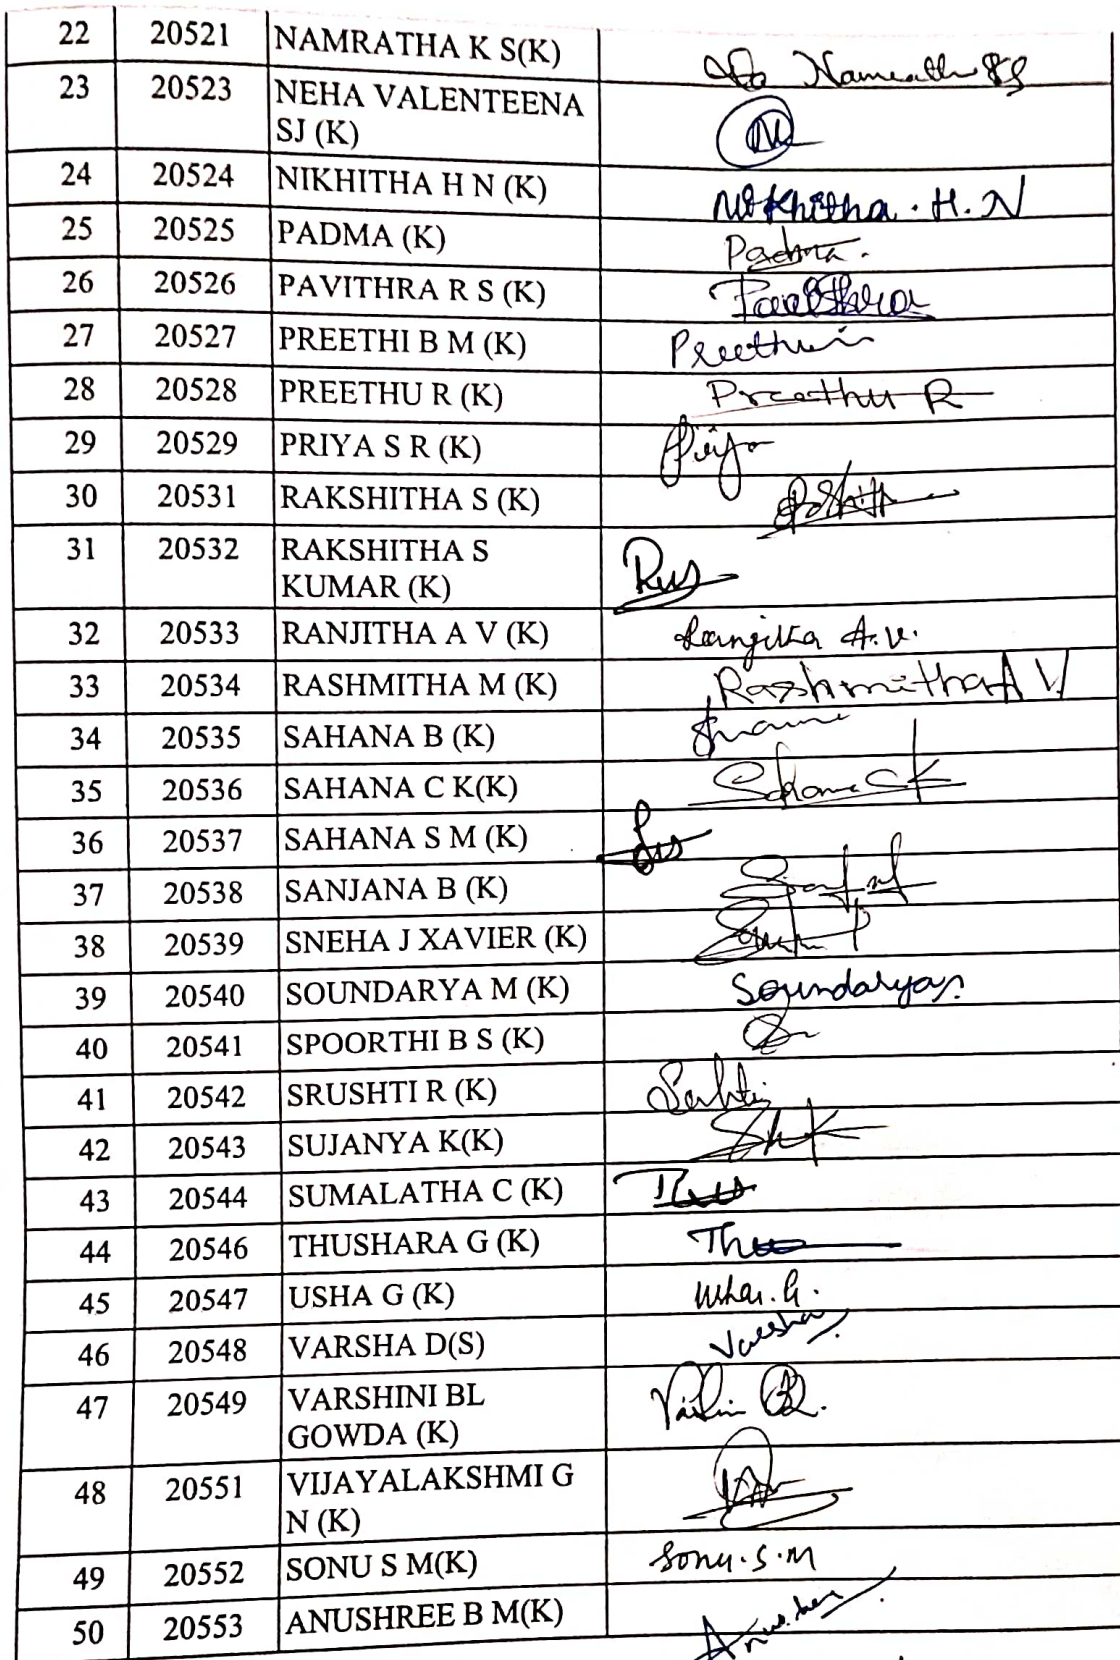 22 20521 NAMRATHA K S(K) Namratha KS
23 20523 NEHA VALENTEENA
SJ (K)
24 20524 NIKHITHA H N (K) Nikhitha . H. N
25 20525 PADMA (K) Padma.
26 20526 PAVITHRA R S (K) Pavithra
27 20527 PREETHI B M (K)
28 20528 PREETHU R (K) Preethu R
29 20529 PRIYA S R (K) Priya
30 20531 RAKSHITHA S (K)
31 20532 RAKSHITHA S
KUMAR (K)
32 20533 RANJITHA A V (K) Ranjitha A.V.
33 20534 RASHMITHA M (K) Rashmitha
34 20535 SAHANA B (K)
35 20536 SAHANA C K(K) Sahana C K
36 20537 SAHANA S M (K)
37 20538 SANJANA B (K)
38 20539 SNEHA J XAVIER (K)
39 20540 SOUNDARYA M (K) Soundarya
40 20541 SPOORTHI B S (K)
41 20542 SRUSHTI R (K)
42 20543 SUJANYA K(K)
43 20544 SUMALATHA C (K)
44 20546 THUSHARA G (K)
45 20547 USHA G (K) Usha. G.
46 20548 VARSHA D(S) Varsha
47 20549 VARSHINI BL
GOWDA (K)
48 20551 VIJAYALAKSHMI G
N (K)
49 20552 SONU S M(K) Sonu. S. M
50 20553 ANUSHREE B M(K)